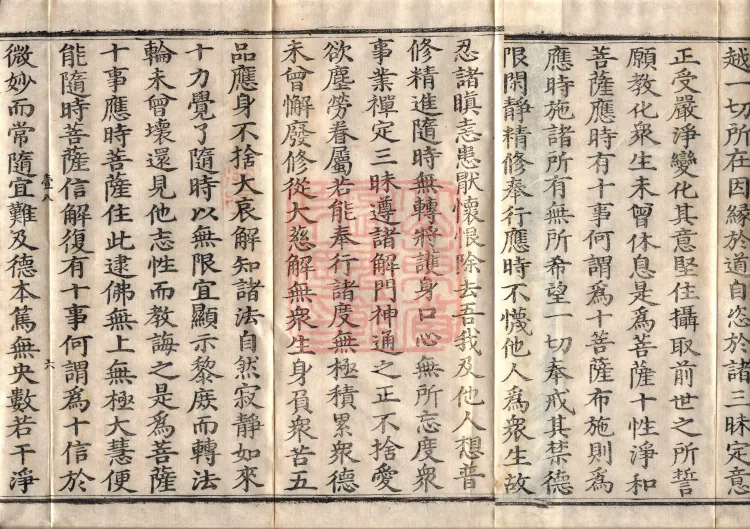 越一切所在因緣於道自恣於諸三昧定意
正受嚴淨變化其意堅住攝取前世之所誓
願教化衆生未曾休息是爲菩薩十性淨和
菩薩應時有十事何謂爲十菩薩布施則爲
應時施諸所有無所希望一切奉戒其禁德
限閑靜精修奉行應時不懱他人爲衆生故
忍諸瞋恚患厭懷恨除去吾我及他人想普
修精進隨時無轉將護身口心無所忘度衆
事業禪定三昧遵諸解門神通之正不捨愛
欲塵勞眷屬若能奉行諸度無極積累衆德
未曾懈廢修從大慈解無衆生身負衆苦五
品應身不捨大哀解知諸法自然寂靜如來
十力覺了隨時以無限宜顯示黎庶而轉法
輪未曾壞還見他志性而教誨之是爲菩薩
十事應時菩薩住此逮佛無上無極大慧便
能隨時菩薩信解復有十事何謂爲十信於
壹八
六
微妙而常隨宜難及德本篤無央數若干淨